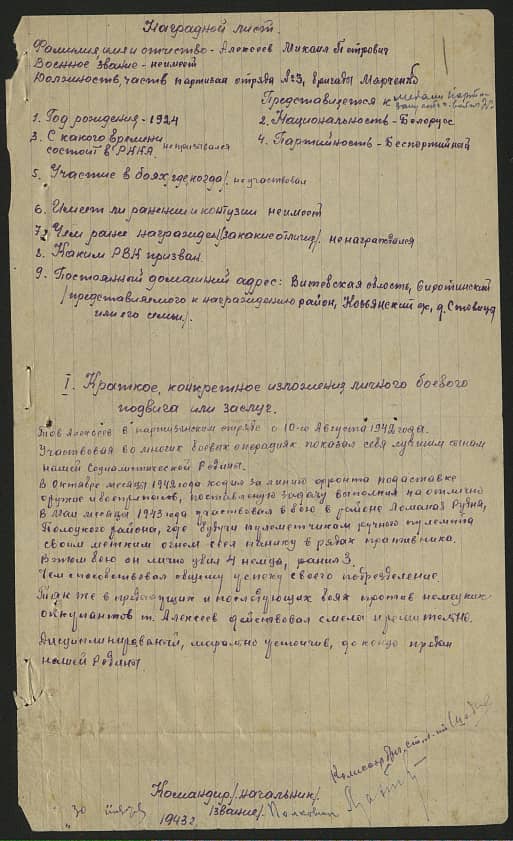 Наградной лист.
Фамилия имя и отчество - Алексеев Михаил Петрович
Военное звание - неимеет
Должность, часть партизан отряда №3, бригады Марченко
Представляется к медали Парти-
зану
1. Год рождения - 1924
2. Национальность - Белорус
3. С какого времени
состоит в РККА непризывался
4. Партийность - Беспартийный
5. Участие в боях, где, когда/. неучаствовал
6. Имеет ли ранения и контузии неимеет
7. Чем ранее награжден/за какие отличия/. ненаграждался
8. Каким РВК призван.
9. Постоянный домашний адрес: Витебская область, Сиротинский
/представляемого к награждению район, Козьянский с/с, д.
или его семьи/.
I. Краткое, конкретное изложения личного боевого
подвига или заслуг.
Тов Алексеев в партизанском отряде с 10-го Августа 1942 года.
Участвовал во многих боевых операциях показал себя лучшим сыном
нашей Социалистической Родины.
В Октябре месяце 1942 года ходил за линию фронта подаставке
оружие и боеприпасов, поставленую задачу выполнил на отлично
В Мае месяце 1943 года участвовал в бою в районе Ломаная Рудня,
Полоцкого района, где будучи пулеметчикам ручного пулемта
своим метким огнем сеял панику в рядах противника.
В этом бою он лично убил 4 немца, ранил 3.
Чем способствовал общиму успеху своего подразделение.
Также в предыдущих и последующих боях против немецких
оккупантов т. Алексеев действовал смело и решительно.
Дисциплинированый, морально устойчив, до конца предан
нашей Родины.
Комиссар бриг. ст. л-нт
Командир/начальник/
/звание/. Полковник
"30 1943 г.